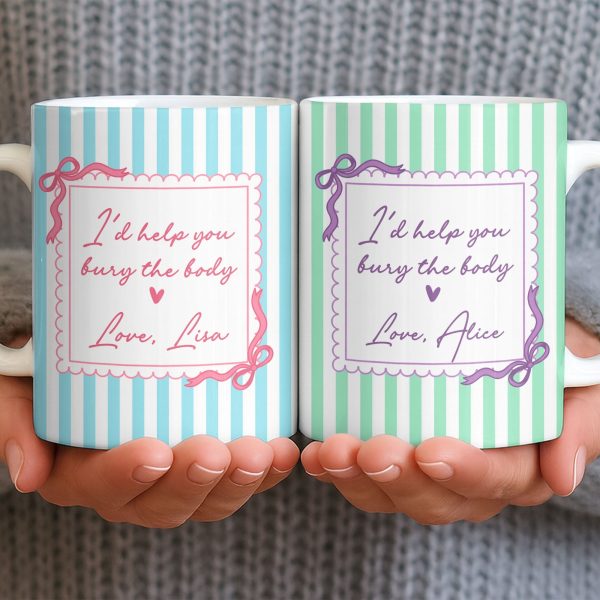 I'd help you
bury the body
Love, Lisa
I'd help you
bury the body
Love, Alice